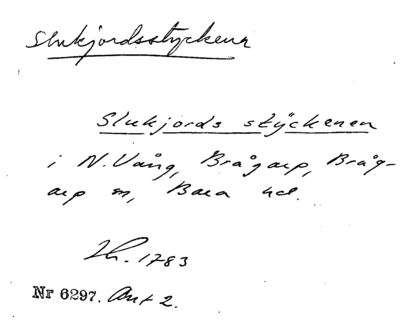 Slukjordsstyckena
Slukjords styckenen
i N. Vång, Brågarp, Bråg-
arp sn, Bara hd.
Lh. 1783
Nr 6297. Ant 2.